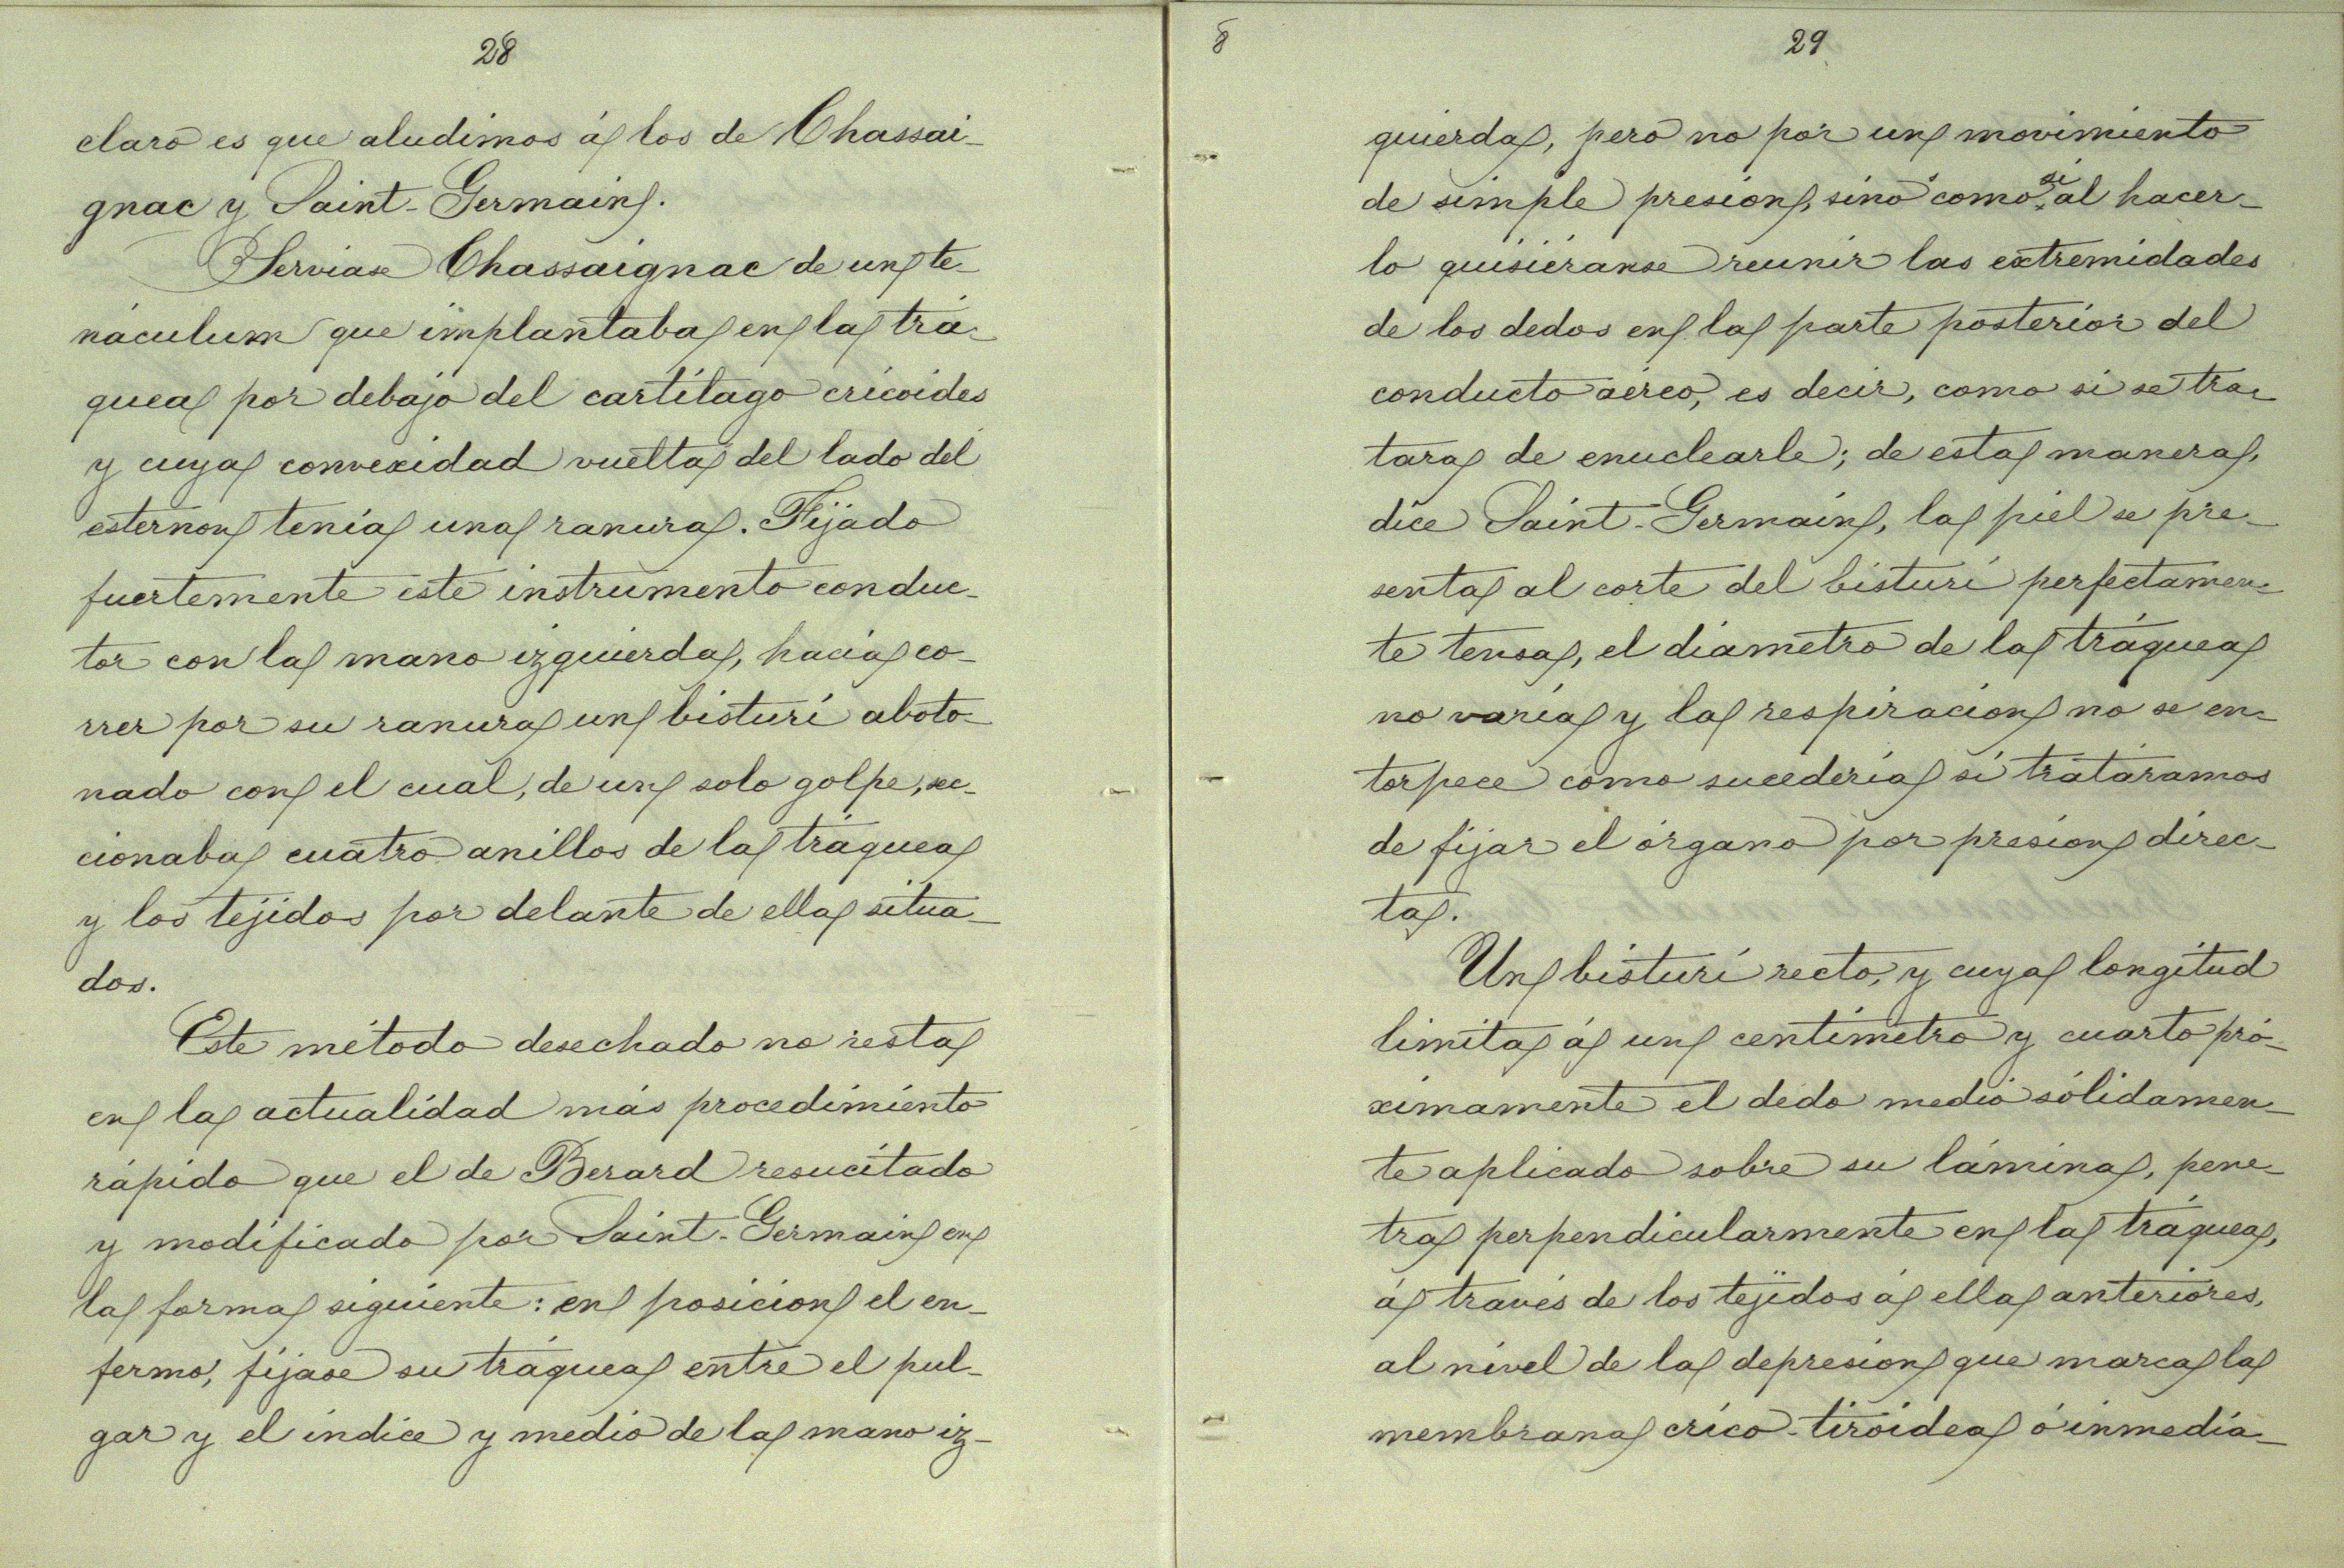 28
claro es que aludimos á los de Chassai-
gnac y Saint-Germain.
Serviase Chassaignac de un te-
náculum que implantaba en la trá-
quea por debajo del cartílago cricoides
y cuya convexidad vuelta del lado del
esternon tenía una ranura. Fijado
fuertemente este instrumento conduc-
tor con la mano izquierda, hacia co-
rrer por su ranura un bisturí aboto-
nado con el cual, de un solo golpe, sec-
cionaba cuatro anillos de la tráquea
y los tejidos por delante de ella situa-
dos.
Este método desechado no resta
en la actualidad más procedimiento
rápido que el de Berard resucitado
y modificado por Saint-Germain en
la forma siguiente: en posicion el en-
fermo, fíjase su tráquea entre el pul-
gar y el índice y medio de la mano iz-
8
29
quierda, pero no por un movimiento
de simple presion, sino como si al hacer-
lo quisiéranse reunir las extremidades
de los dedos en la parte posterior del
conducto aéreo, es decir, como si se tra-
tara de enuclearle; de esta manera,
dice Saint-Germain, la piel se pre-
senta al corte del bisturí perfectamen-
te tensa, el diámetro de la tráquea
no varía y la respiracion no se en-
torpece como sucedería si tratáramos
de fijar el órgano por presion direc-
ta.
Un bisturí recto, y cuya longitud
limita á un centímetro y cuarto pró-
ximamente el dedo medio sólidamen-
te aplicado sobre su lámina, pene-
tra perpendicularmente en la tráquea,
á través de los tejidos á ella anteriores,
al nivel de la depresion que marca la
membrana crico-tiróidea ó inmedia-